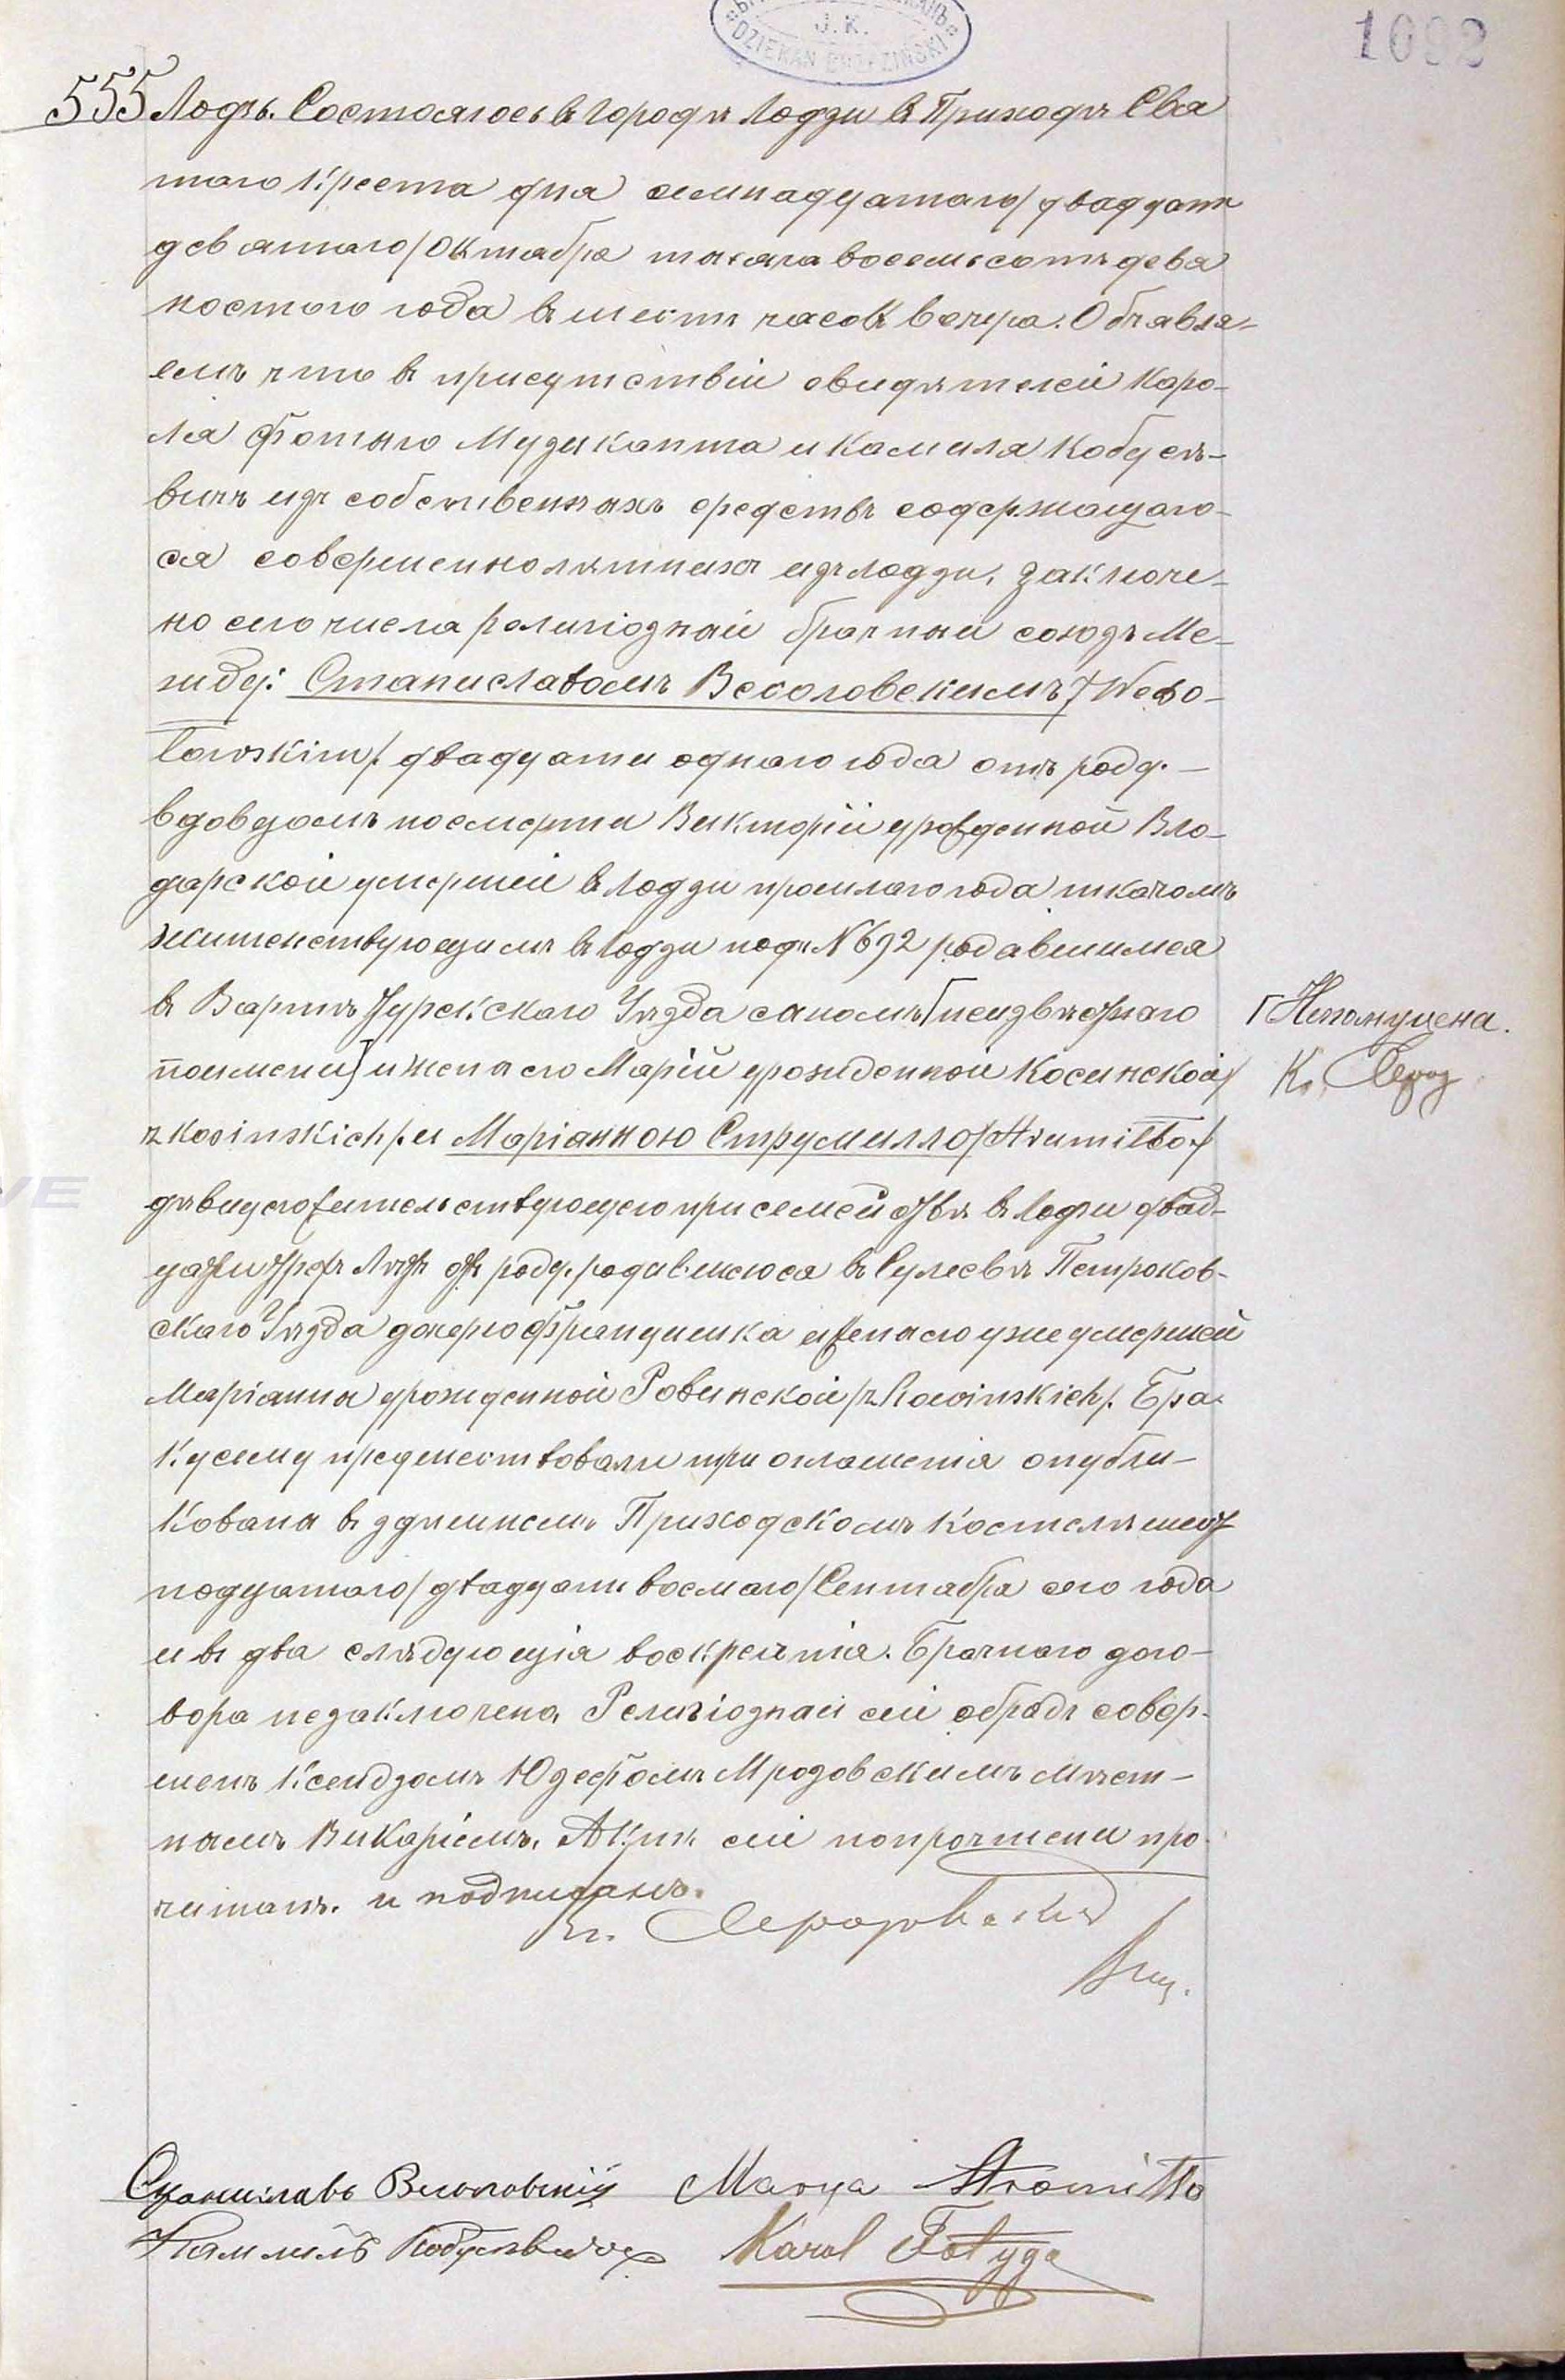 J. K.
DZIEKAN BRZEZIŃSKI
1092
555 Лодзь. Состоялось въ городѣ Лодзи въ Приходѣ Свя
таго Креста дня семнадцатаго/двадцать
девятаго/Октября тысяча восемьсотъ девя
ностого года въ шесть часовъ вечера. Объявля-
емъ что въ присутствіи свидѣтелей Каро-
ля Фотыго Музыканта и Камиля Кобусѣ-
вичъ изъ собственныхъ средствъ содержащаго-
ся совершеннолѣтнихъ изъ Лодзи, заключе-
но сего числа религіозный брачный союзъ Ме-
жду: Станиславомъ Весоловскимъ/Weso-
łowskim/ двадцати одного года отъ роду.—
вдовцомъ по смерти Викторіи урожденной Вло-
дарской умершей въ Лодзи прошлаго года ткачомъ
жительствующимъ въ Лодзи подъ № 692 родившимся
въ Вартѣ Турекскаго Уѣзда сыномъ [неизвѣстнаго
поимени] и жены его Маріи урожденной Косинской/
z Kosinskich/ и Маріанною Струмилло/Strumiłło/
дѣвицею жительствующею при семействѣ въ Лодзи двад-
цати трехъ лѣтъ отъ роду, родившеюся въ Сулеевѣ Петроков-
скаго Уѣзда дочерью Францишка и жены его уже умершей
Маріанны урожденной Ровинской/z Rowinskich/. Бра-
ку сему предшествовали три оглашенія опубли-
кованы въ здѣшнемъ Приходскомъ Костелѣ шест
надцатаго/двадцать восмаго/Сентября сего года
и въ два слѣдующія воскресенія. Брачнаго дого-
вора незаключено, Религіозный сей обрядъ совер-
шенъ Ксендзомъ Юзефомъ Мрозовскимъ мѣст-
нымъ Викаріемъ. Актъ сей попрочтени про-
читанъ. и подписанъ.
Кс. Мрозовскій
Вик.
Г Непомуцена.
Кс. Мроз
Станиславъ Весоловскій Marya Stromiłło
Камиль Кобусѣвичъ Karol Fotyga